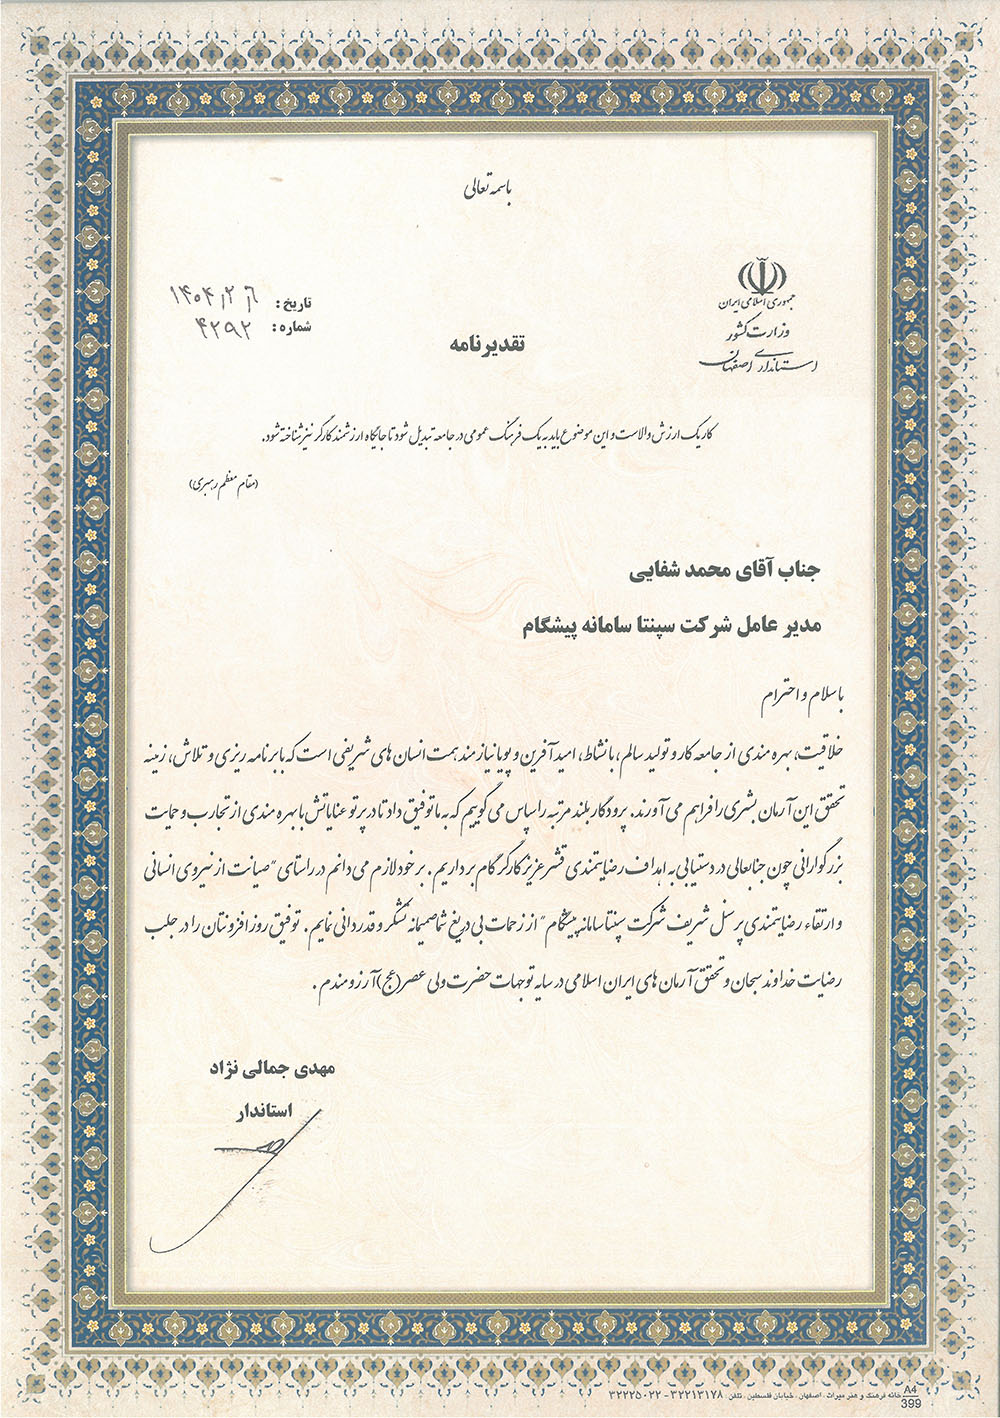 باسمه تعالی
جمهوری اسلامی ایران
وزارت کشور
استانداری اصفهان
تاریخ : ۱۴۰۴/۲/۶
شماره : ۴۲۹۲
تقدیرنامه
کار یک ارزش والاست و این موضوع باید به یک فرهنگ عمومی در جامعه تبدیل شود تا جایگاه ارزشمند کارگر نیز شناخته شود.
(مقام معظم رهبری)
جناب آقای محمد شفایی
مدیر عامل شرکت سپنتا سامانه پیشگام
با سلام و احترام
خلاقیت، بهره مندی از جامعه کار و تولید سالم، با نشاط، امید آفرین و پویا نیازمند همت انسان های شریفی است که با برنامه ریزی و تلاش، زمینه
تحقق این آرمان بشری را فراهم می آورند. پرودگار بلند مرتبه را سپاس می گوییم که به ما توفیق داد تا در پرتو عنایاتش با بهره مندی از تجارب و حمایت
بزرگوارانی چون جنابعالی در دستیابی به اهداف رضایتمندی قشر عزیز کارگر گام برداریم . بر خود لازم می دانم در راستای "صیانت از نیروی انسانی
و ارتقاء رضایتمندی پرسنل شریف شرکت سپنتا سامانه پیشگام" از زحمات بی دریغ شما صمیمانه تشکر و قدردانی نمایم . توفیق روز افزونتان را در جلب
رضایت خداوند سبحان و تحقق آرمان های ایران اسلامی در سایه توجهات حضرت ولی عصر(عج) آرزومندم .
مهدی جمالی نژاد
استاندار
A4
399
خانه فرهنگ و هنر میراث ، اصفهان ، خیابان فلسطین ، تلفن : ۳۲۲۱۳۱۷۸ - ۳۲۲۲۵۰۲۲